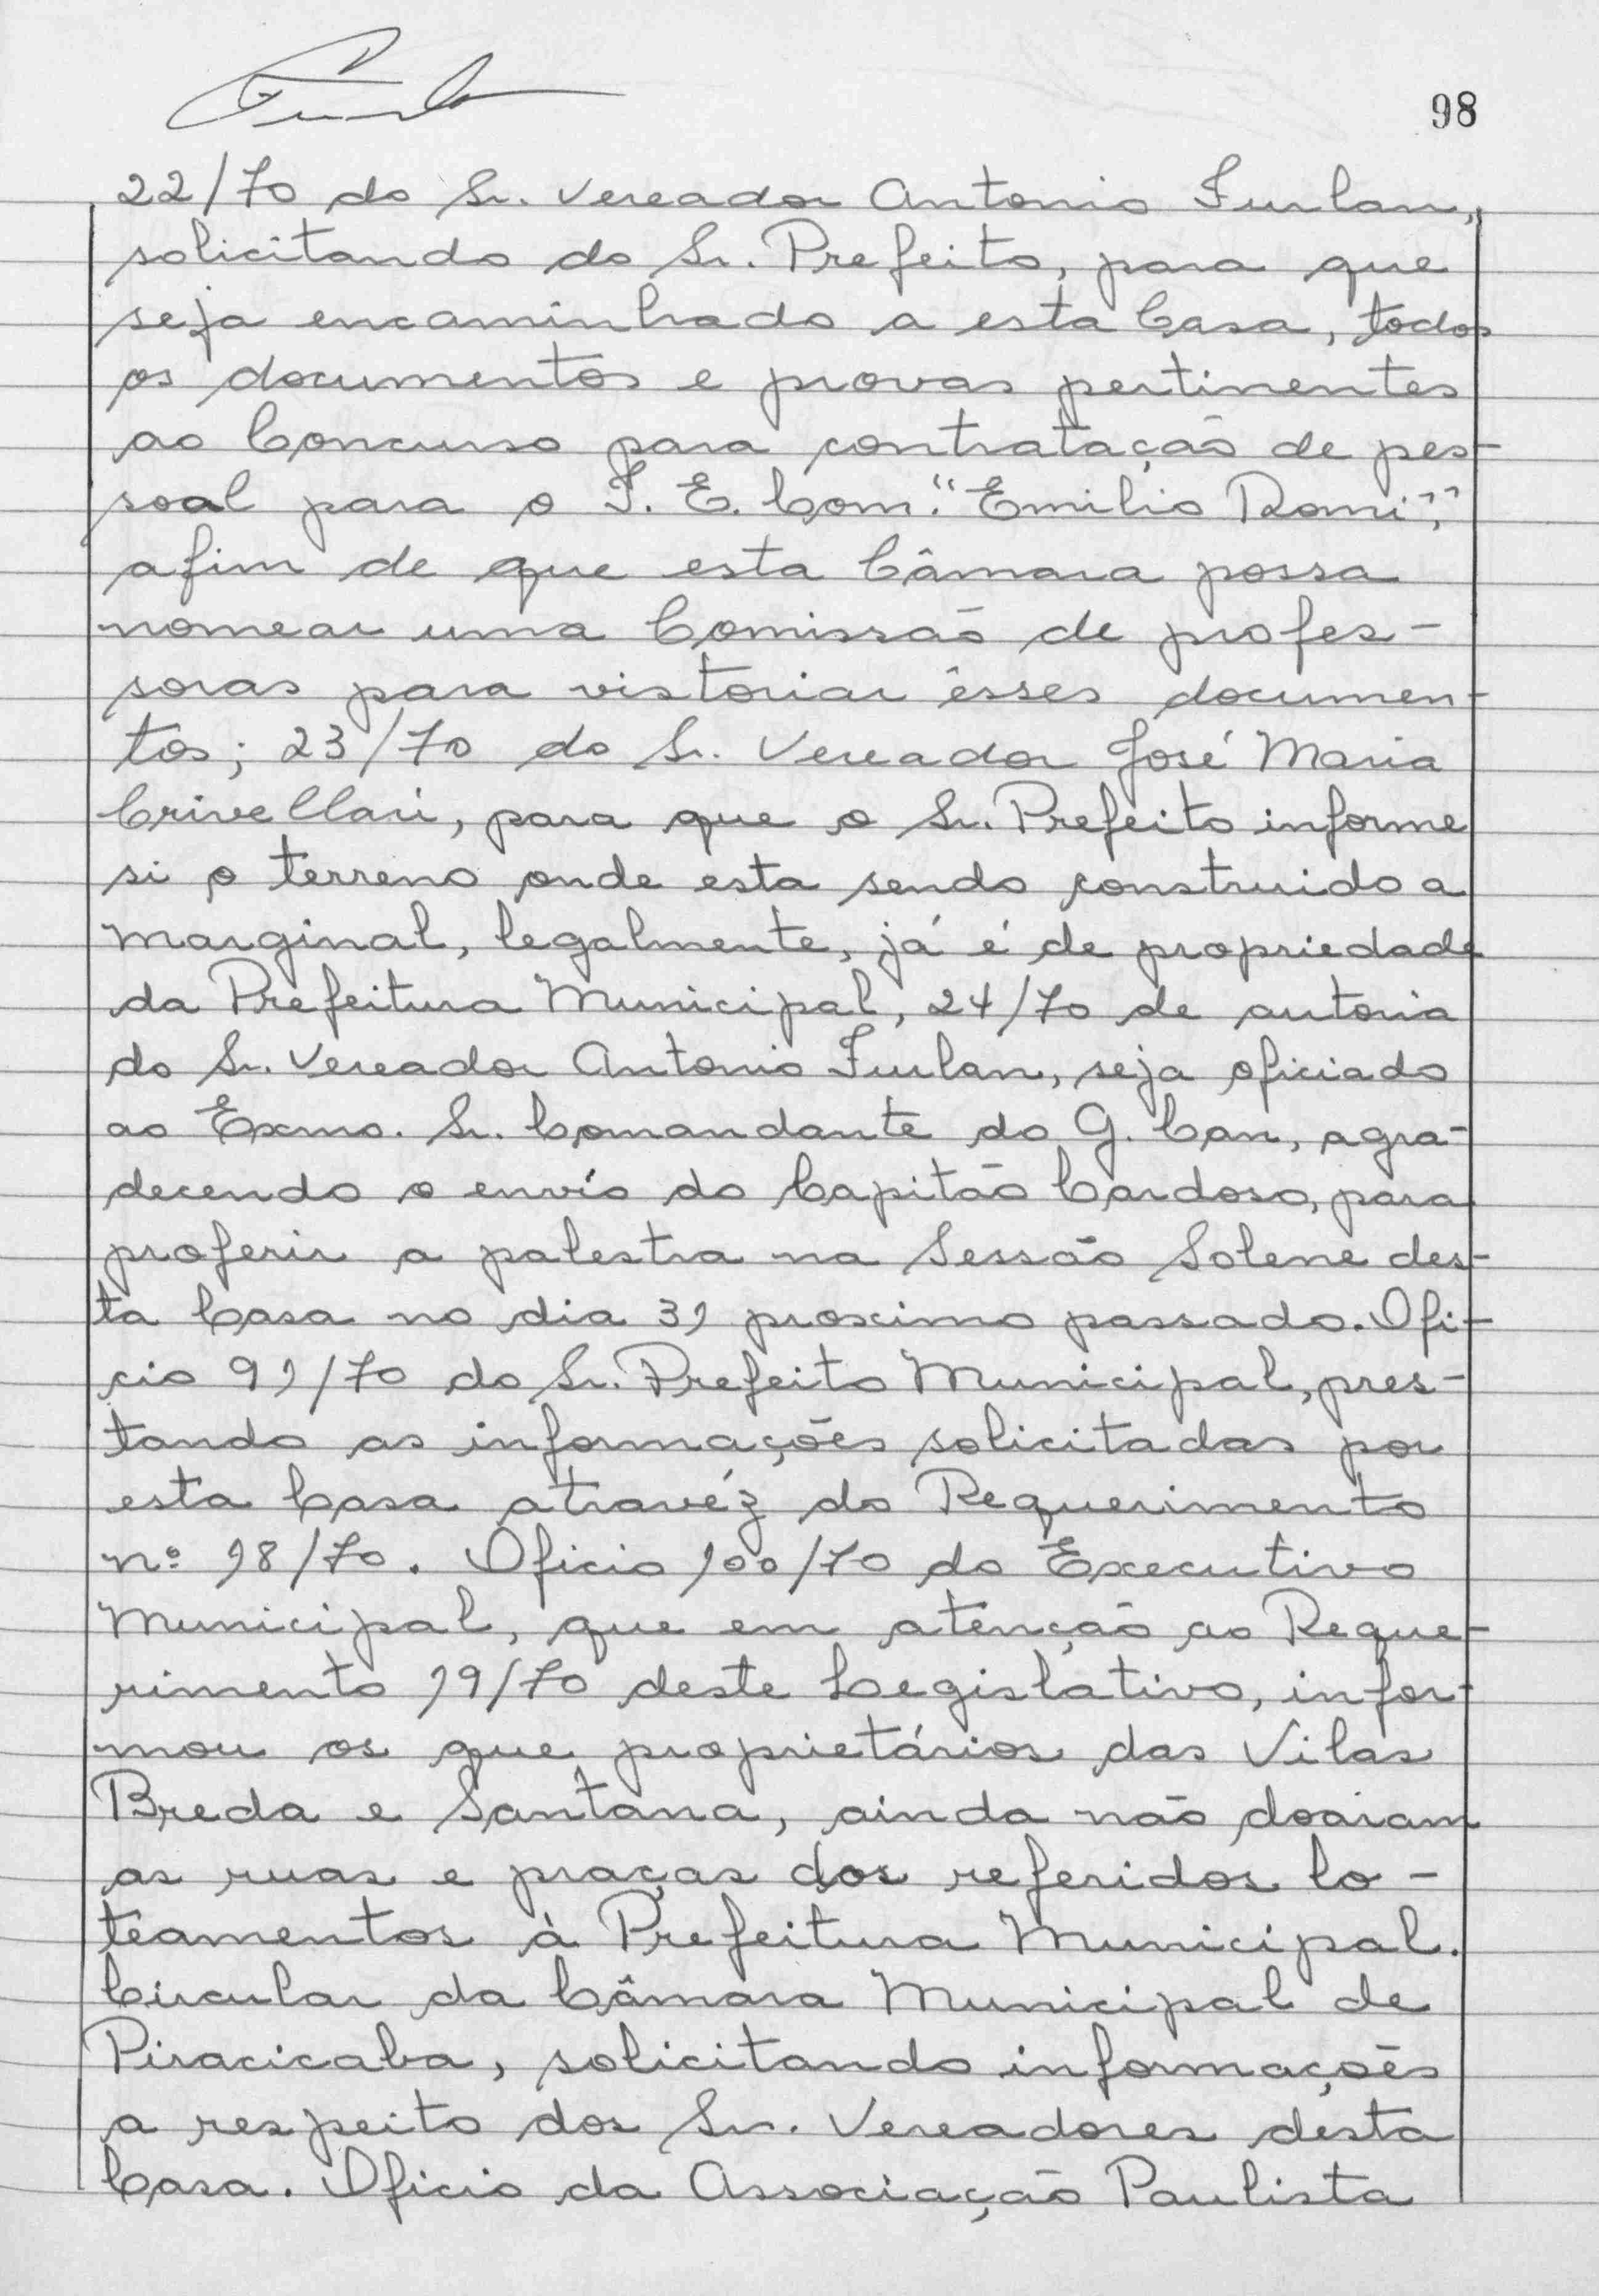 98
22/70 do Sr. Vereador Antonio Furlan,
solicitando do Sr. Prefeito, para que
seja encaminhado a esta Casa, todos
os documentos e provas pertinentes
ao Concurso para contratação de pes-
soal para o I. E. Com. "Emilio Romi",
afim de que esta Câmara possa
nomear uma Comissão de profes-
soras para vistoriar êsses documen-
tos; 23/70 do Sr. Vereador José Maria
Crivellari, para que o Sr. Prefeito informe
si o terreno onde esta sendo construido a
marginal, legalmente, já é de propriedade
da Prefeitura Municipal, 24/70 de autoria
do Sr. Vereador Antonio Furlan, seja oficiado
ao Exmo. Sr. Comandante do G. Can, agra-
decendo o envío do Capitão Cardoso, para
proferir a palestra na Sessão Solene des-
ta Casa no dia 31 proximo passado. Ofi-
cio 91/70 do Sr. Prefeito Municipal, pres-
tando as informações solicitadas por
esta Casa atravéz do Requerimento
nº 18/70. Oficio 100/70 do Executivo
Municipal, que em atenção ao Reque-
rimento 19/70 deste Legislativo, infor-
mou os que proprietários das Vilas
Breda e Santana, ainda não doaram
as ruas e praças dos referidos lo-
teamentos à Prefeitura Municipal.
Circular da Câmara Municipal de
Piracicaba, solicitando informações
a respeito dos Srs. Vereadores desta
Casa. Oficio da Associação Paulista